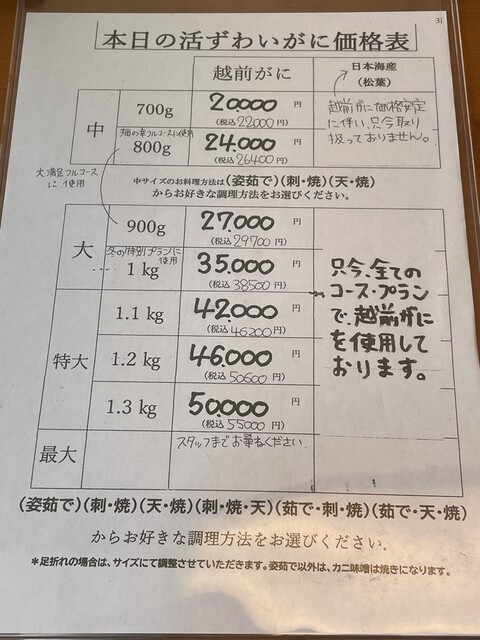 31
本日の活ずわいがに価格表
越前がに
日本海産
(松葉)
中
700g
20,000円
(税込 22000円)
越前がに価格安定
に伴い、只今取り
扱っておりません。
畑の幸フルコースに使用
800g
24,000円
(税込 26400円)
大満足フルコース
に使用
中サイズのお料理方法は(姿茹で)(刺・焼)(天・焼)
からお好きな調理方法をお選びください。
大
900g
27,000円
(税込 29700円)
冬の特別プランに
使用
1 kg
35,000円
(税込 38500円)
只今、全ての
コース・プラン
で、越前がに
を使用して
おります。
特大
1.1 kg
42,000円
(税込 46200円)
1.2 kg
46,000円
(税込 50600円)
1.3 kg
50,000円
(税込 55000円)
最大
スタッフまでお尋ねください
(姿茹で)(刺・焼)(天・焼)(刺・焼・天)(茹で・刺・焼)(茹で・天・焼)
からお好きな調理方法をお選びください.
*足折れの場合は、サイズにて調整させていただきます。姿茹で以外は、カニ味噌は焼きになります。